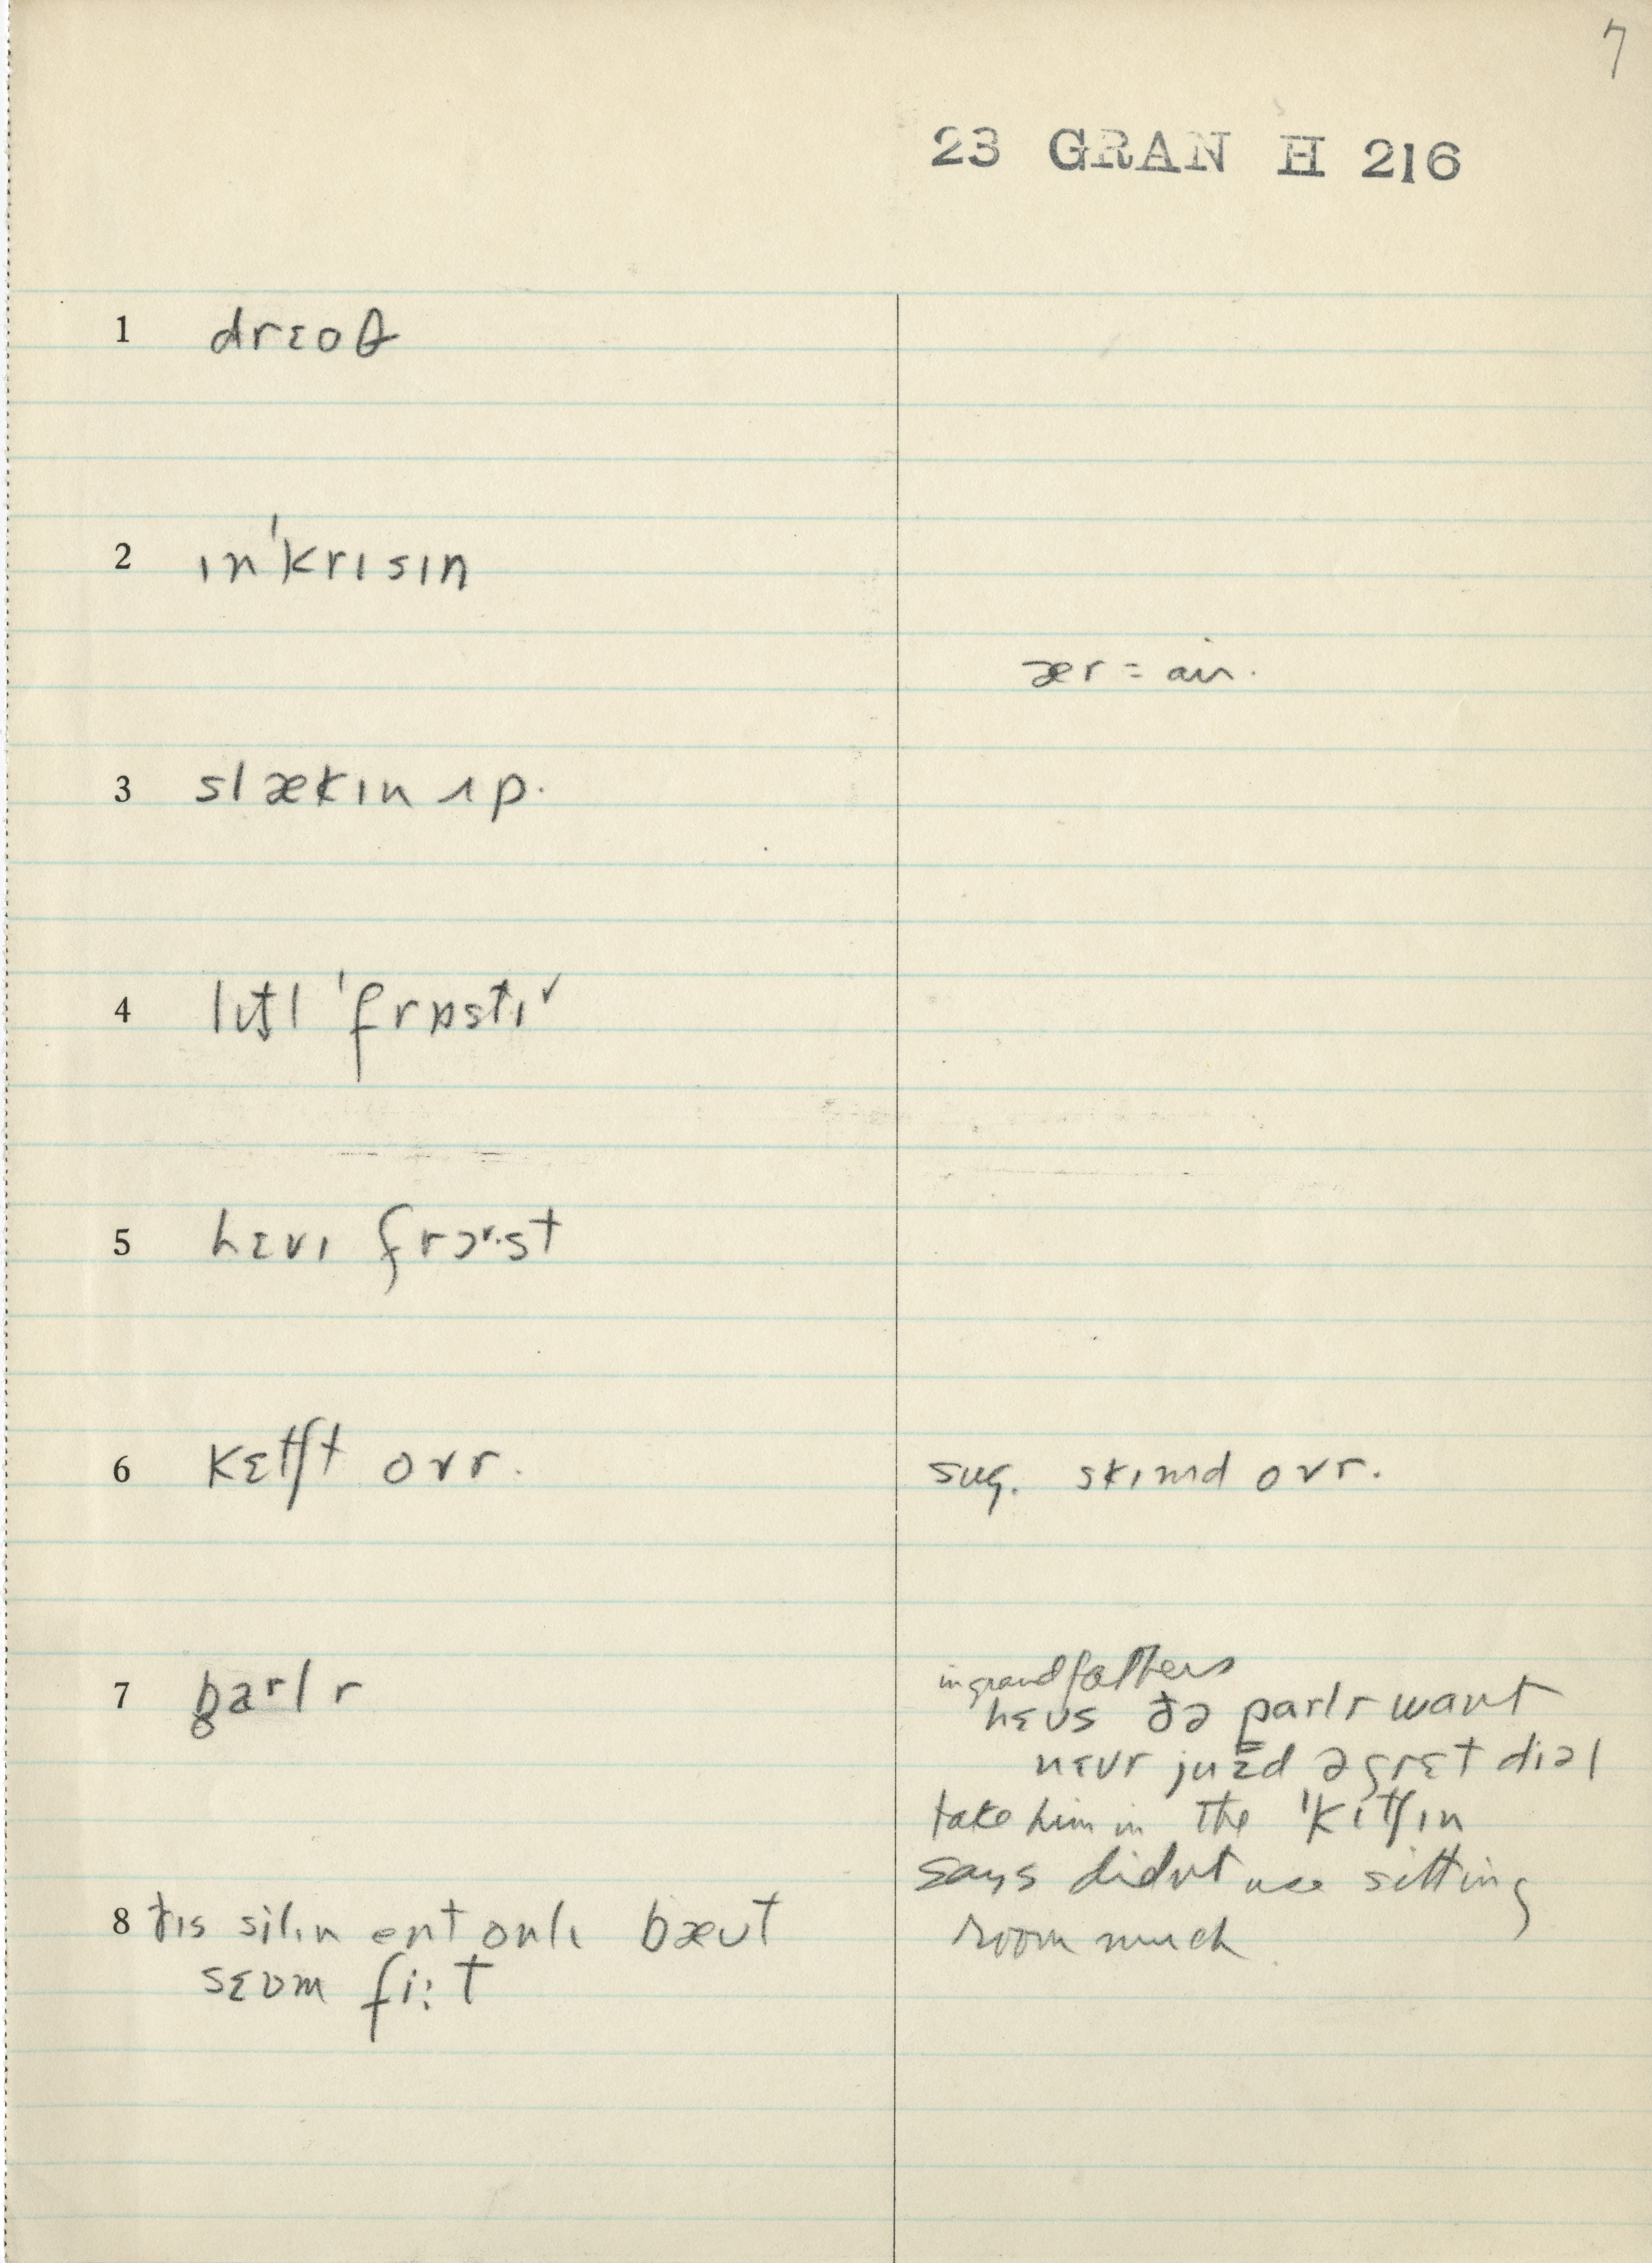 7
23 GRAN H 216
1 drɛoθ
2 ɪn'krɪsɪn
ær = air.
3 slækɪn ʌp.
4 lɪt̬l 'frɒstɪ˅
5 hɛvɪ frɔ˅·st
6 kɛtʃt ovr.
sug. skɪmd ovr.
7 parlr
in grandfathers
hɛʊs ðə parlr want
nɛvr juzd ə grɛt diəl
take him in the 'kɪtʃɪn
says didnt use sitting
room much.
8 ðɪs silɪn ent onlɪ bæʊt
sɛʊm fi:t